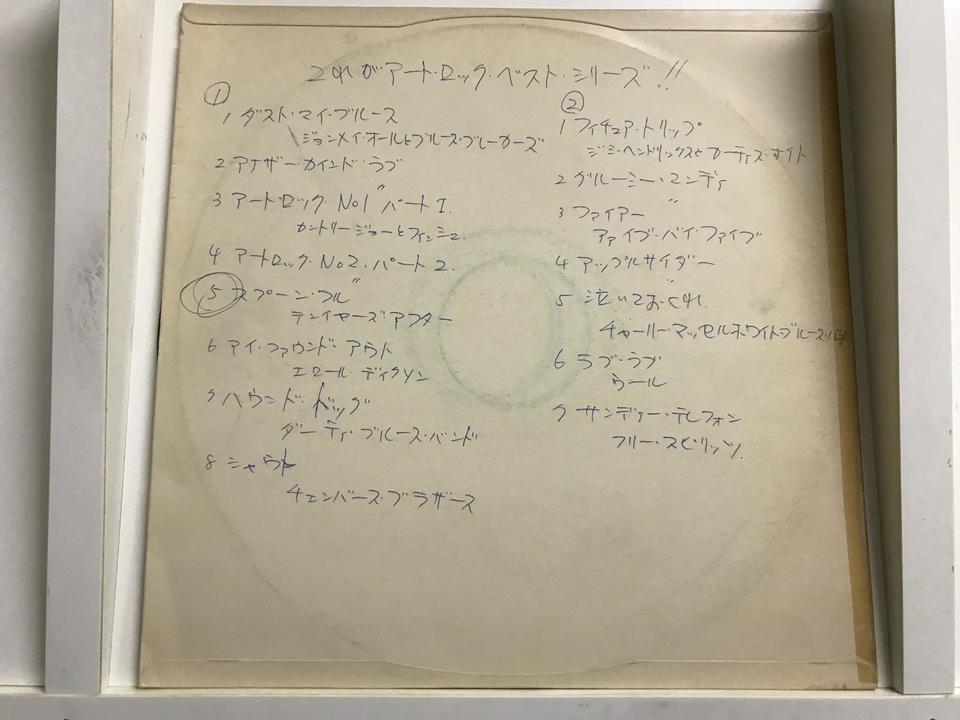 これがアート・ロック・ベスト・シリーズ!!
①
1 ダスト・マイ・ブルース
ジョンメイ・オールとブルース・ブレーカーズ
2 アナザー・カインド・ラブ
〃
3 アート・ロック No1 パート1.
カントリージョーとフィッシュ.
4 アートロック・No2. パート2.
〃
5 スプーン・フル
テンイヤーズ・アフター
6 アイ・ファウンド・アウト
エロール・ディクソン
7 ハウンド・ドッグ
ダーティ・ブルース・バンド
8 シャウト
チェンバース・ブラザース
②
1 フィチュア・トリップ
ジミ・ヘンドリックスとカーティス・ナイト
2 グルーミー・マンディ
〃
3 ファイアー
ファイブ・バイ・ファイブ
4 アップルサイダー
〃
5 泣いておくれ.
チャーリー・マッセルホワイト・ブルース・バンド
6 ラブ・ラブ
ウール
7 サンディー・テレフォン
フリー・スピリッツ.